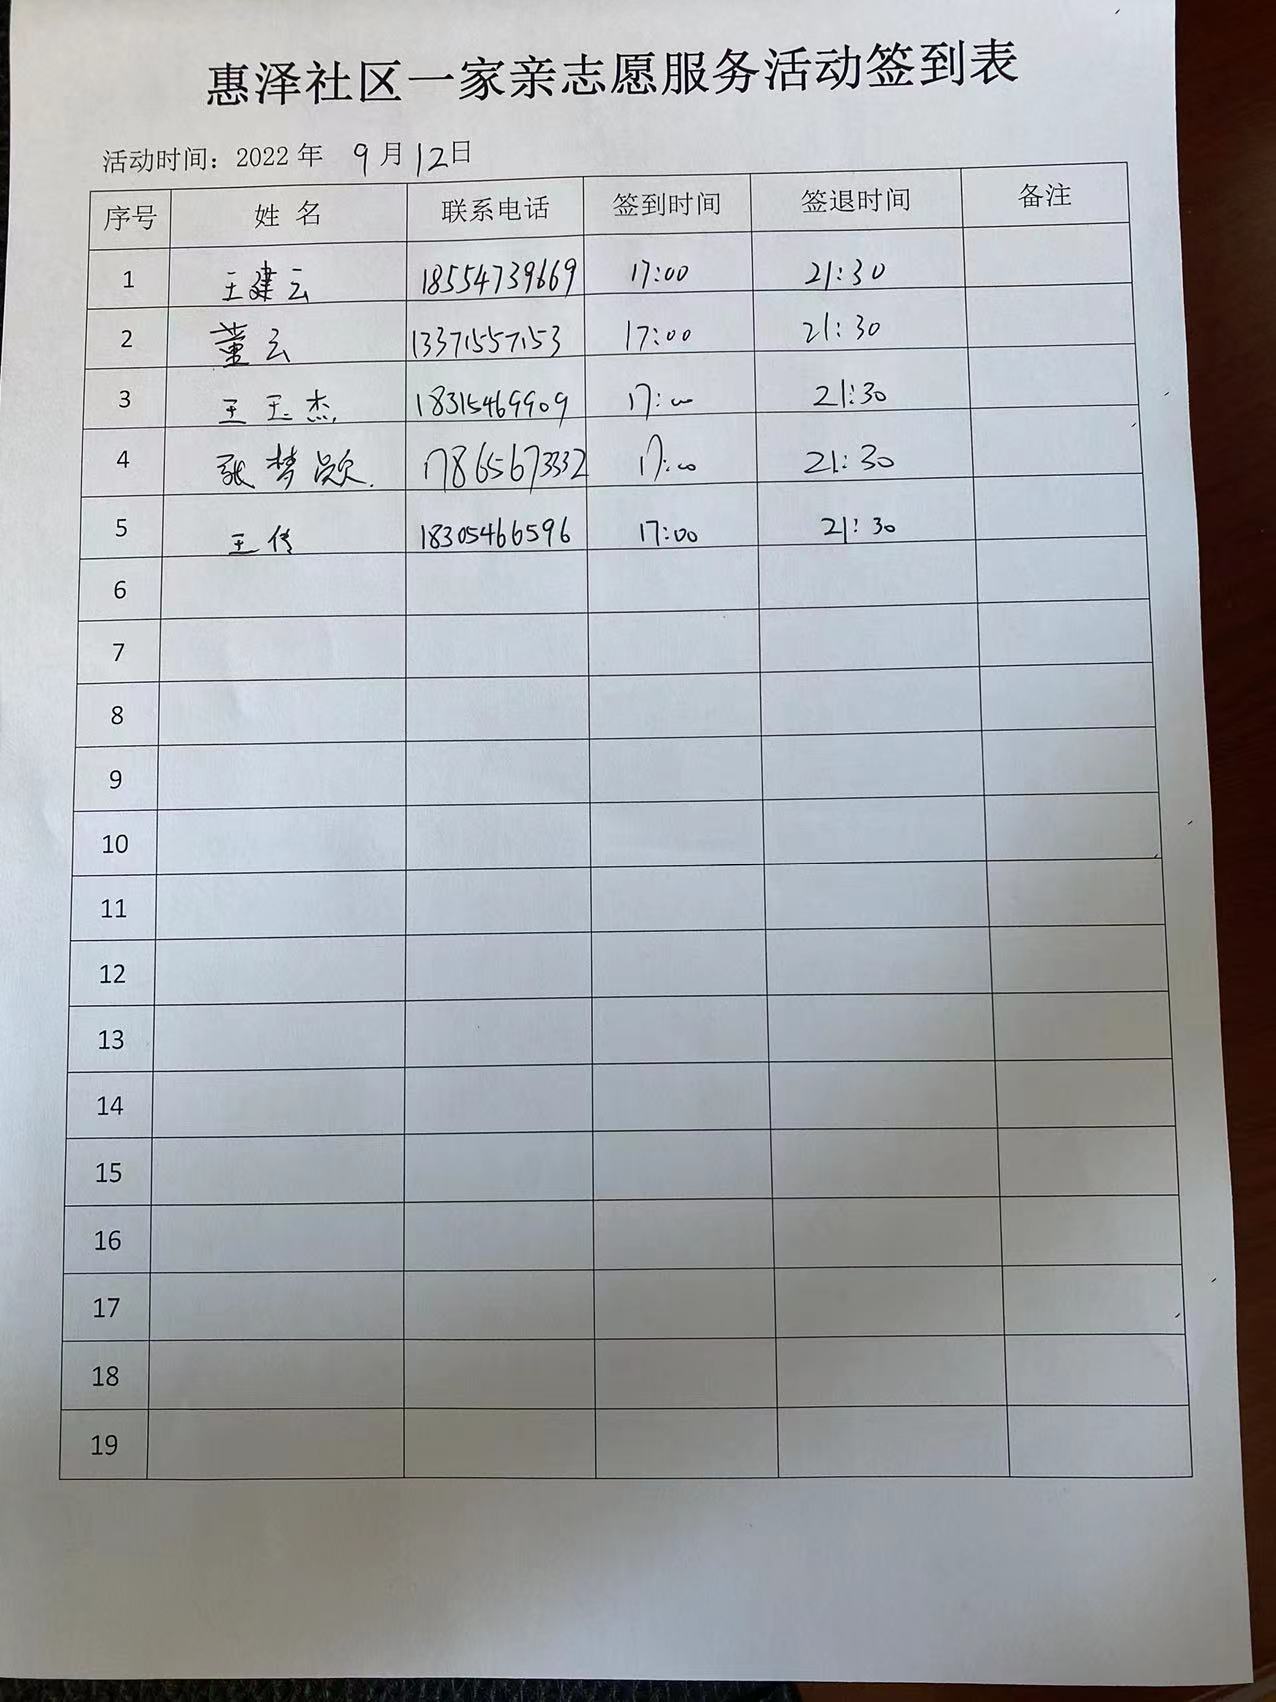 惠泽社区一家亲志愿服务活动签到表
活动时间：2022 年 9 月 12 日
序号 姓 名 联系电话 签到时间 签退时间 备注
1 王建云 18554739669 17:00 21:30
2 董云 13371557153 17:00 21:30
3 王玉杰 18315469909 17:00 21:30
4 张梦 17865673332 17:00 21:30
5 王传 18305466596 17:00 21:30
6
7
8
9
10
11
12
13
14
15
16
17
18
19